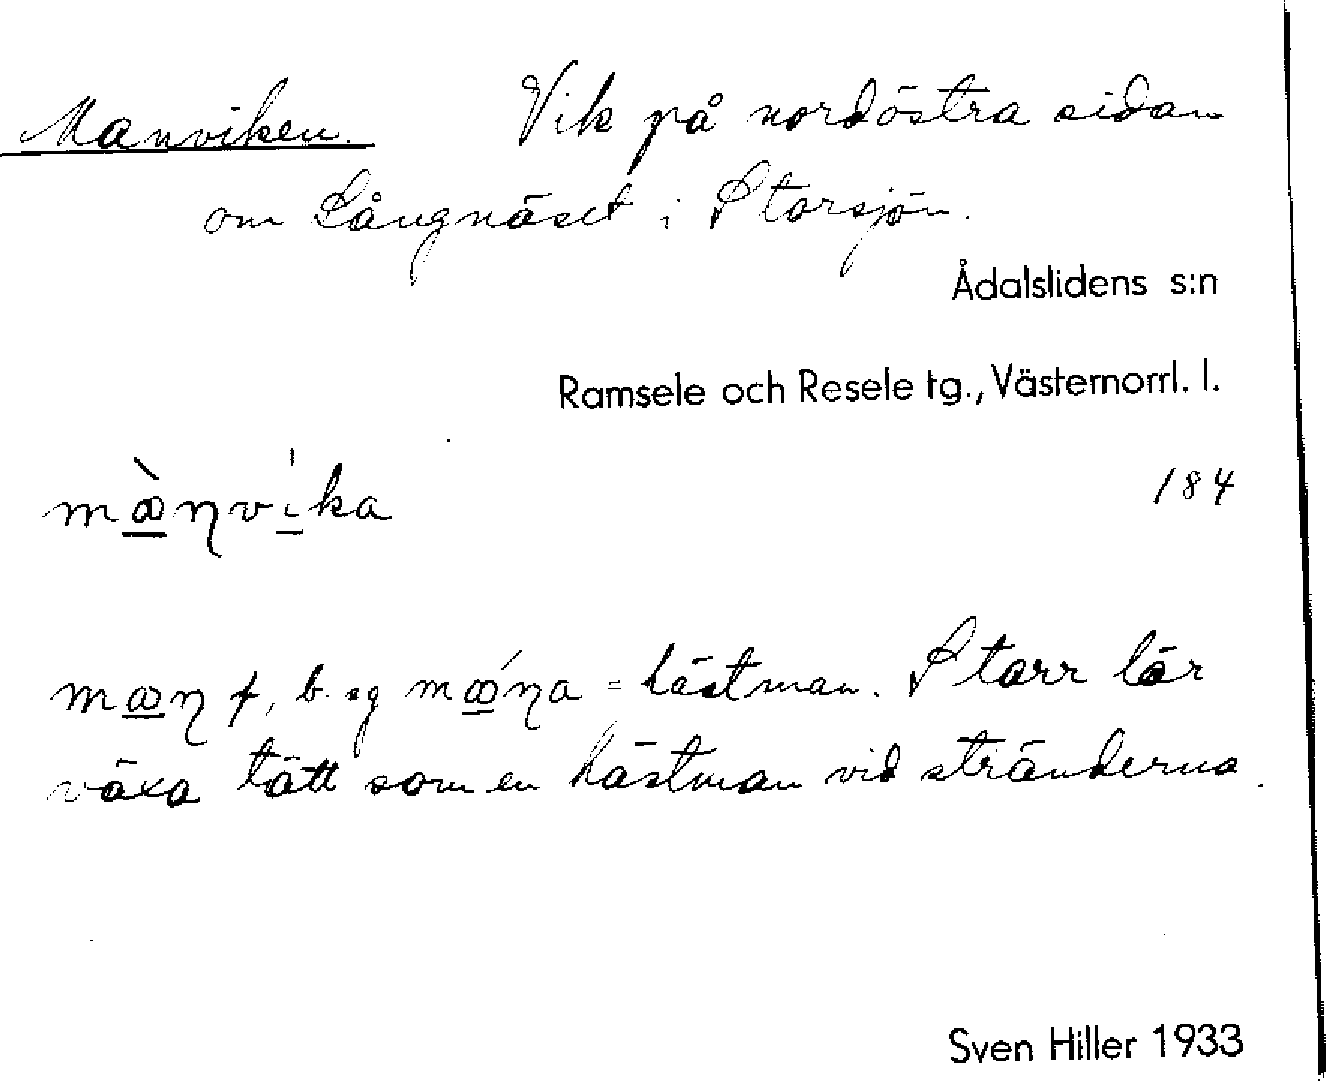 Manviken. Vik på nordöstra sidan
om Långnäset i Storsjön.
Ådalslidens s:n
Ramsele och Resele tg., Västernorrl. l.
184
mꝏ̀ŋvíka
mꝏŋ f, b. sg mꝏ́ŋa = hästman. Starr lär
växa tätt som en hästman vid stränderna.
Sven Hiller 1933